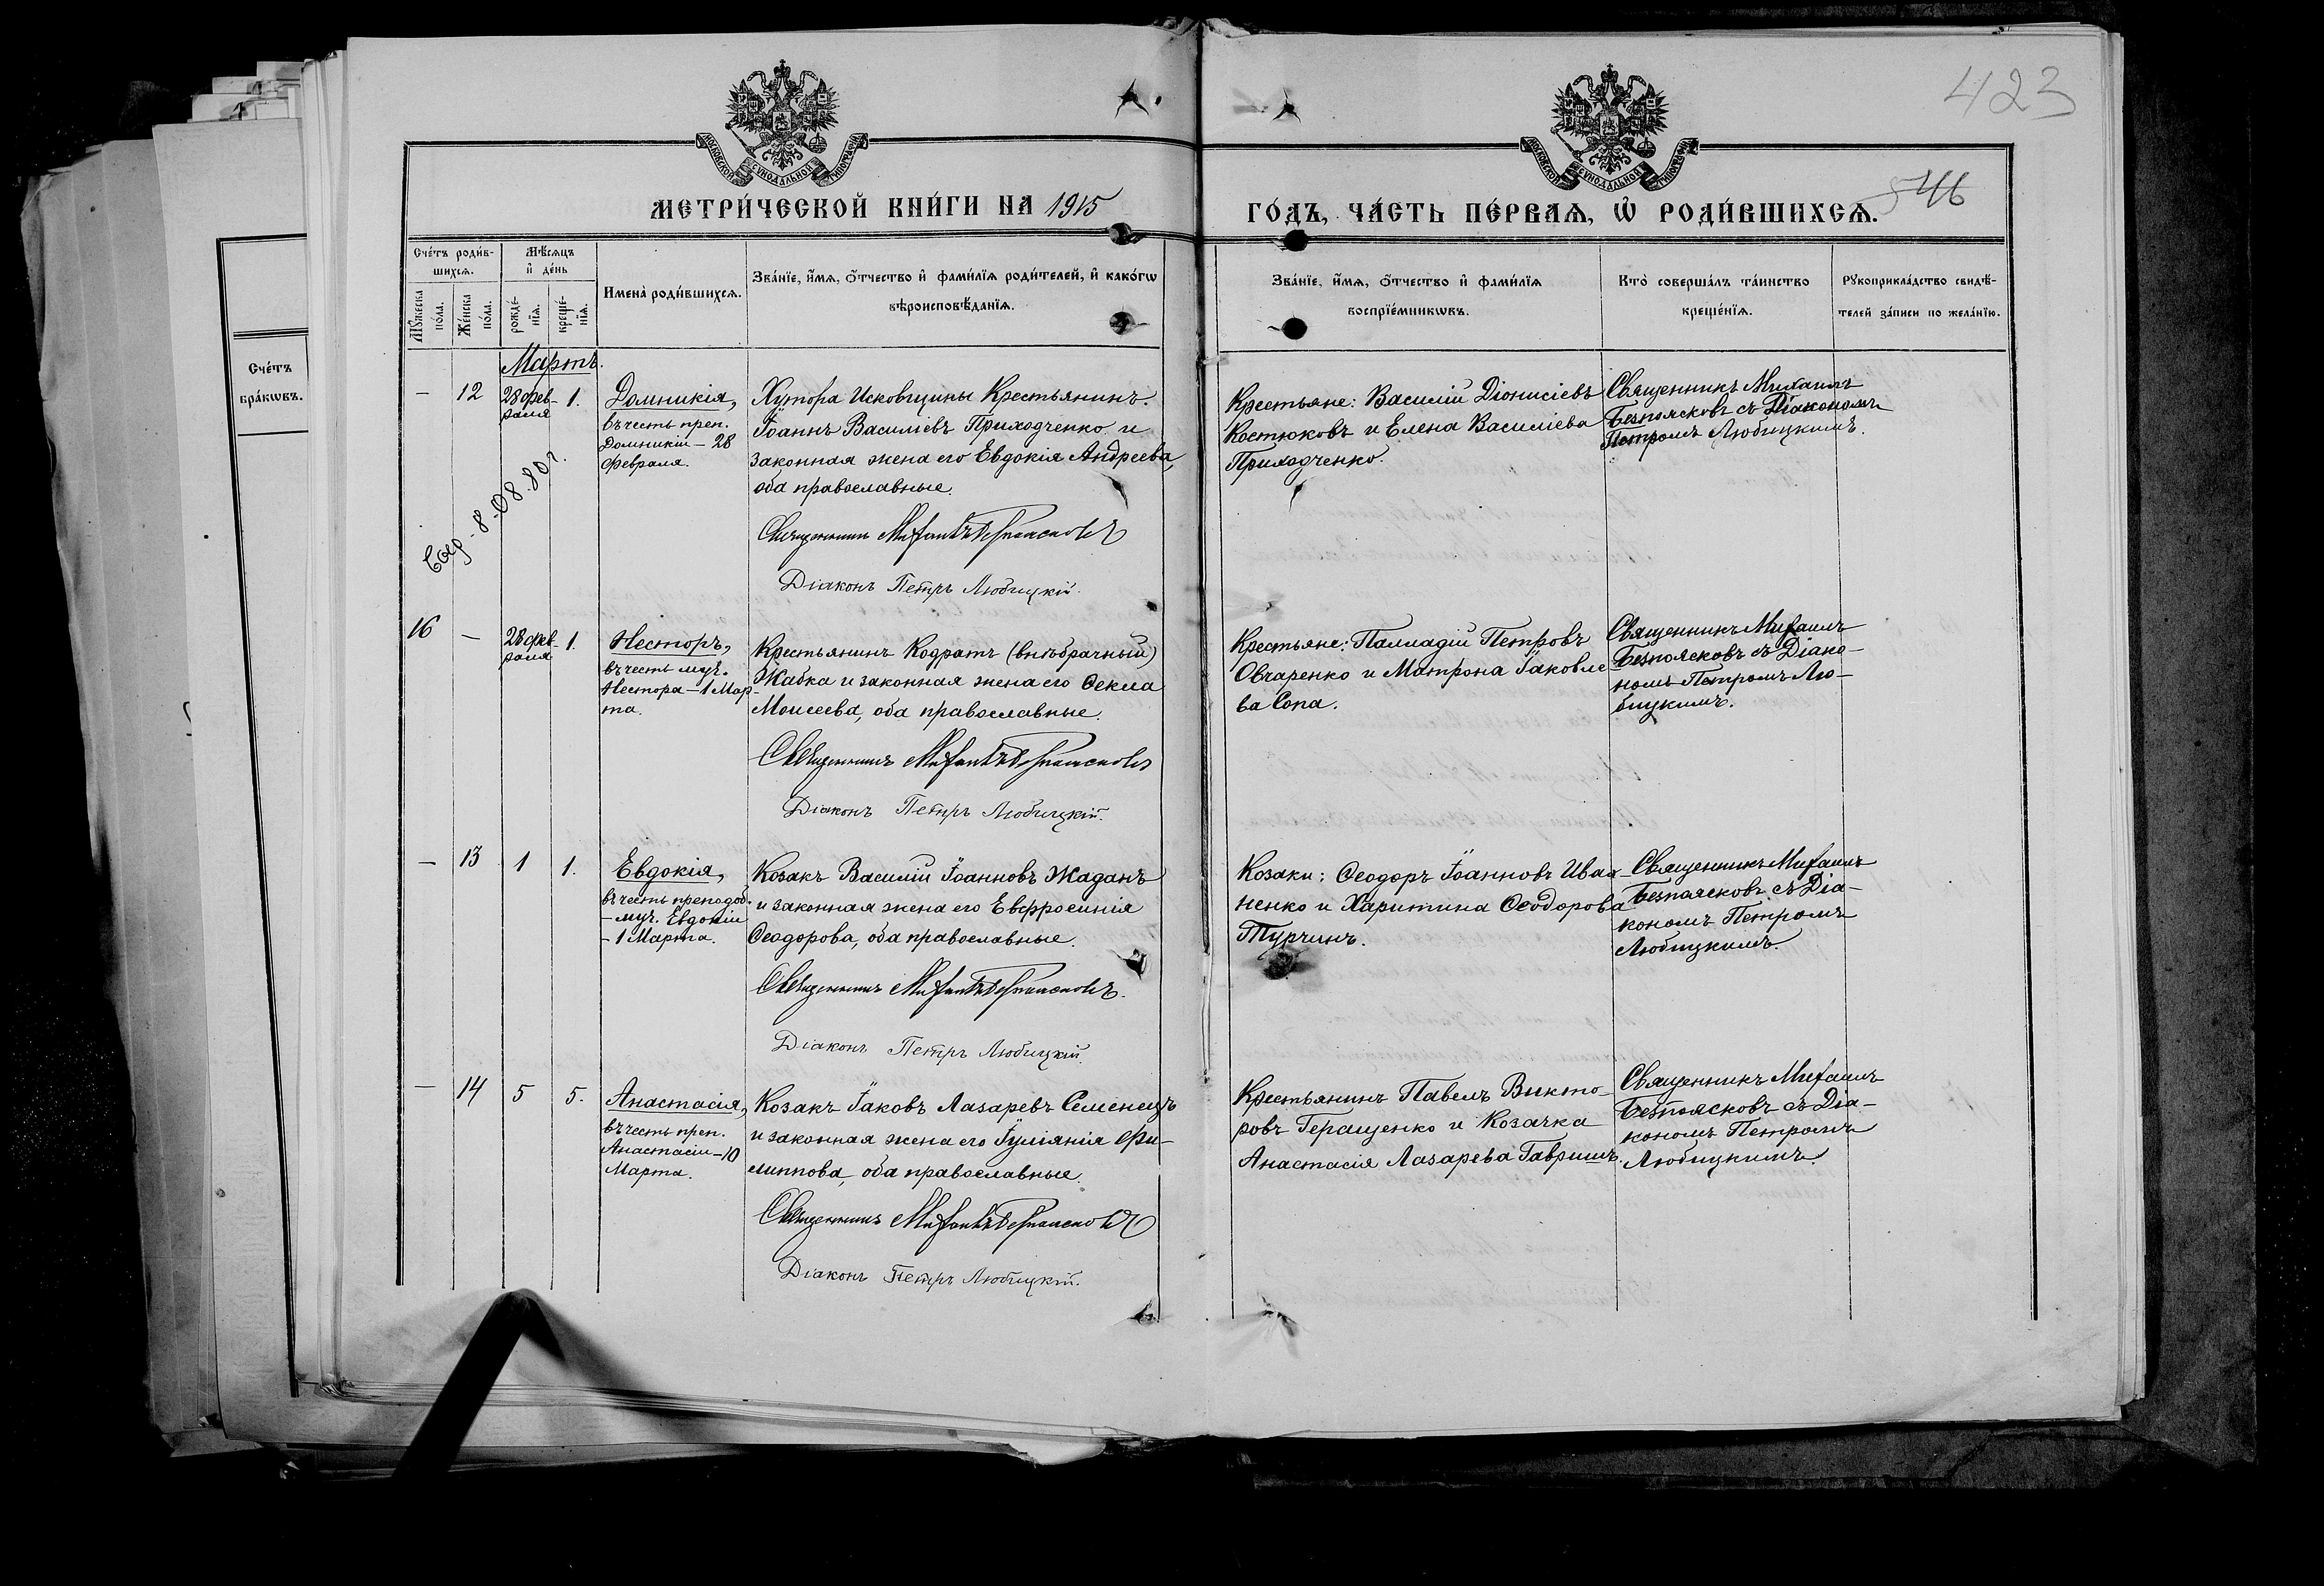 423
МОСКОВСКОЙ СѴНОДАЛЬНОЙ ТИПОГРАФІИ
МОСКОВСКОЙ СѴНОДАЛЬНОЙ ТИПОГРАФІИ
МЕТРИ́ЧЕСКОЙ КНИ́ГИ НА 1915
ГО́ДЪ, ЧА́СТЬ ПЕ́РВАѦ, Ѡ҆ РОДИ́ВШИХСѦ.
546
Сче́тъ
бра́кѡвъ.
Сче́тъ роди́в-
шихсѧ.
Мѣ́сѧцъ
и҆ де́нь
Мꙋ́жеска
по́ла.
Же́нска
по́ла.
рожде́-
нїѧ.
креще́-
нїѧ.
Имена̀ роди́вшихсѧ.
Зва́нїе, и҆́мѧ, ѻ҆́тчество и҆ фами́лїѧ роди́телей, и҆ како́гѡ
вѣроисповѣ́данїѧ.
Зва́нїе, и҆́мѧ, ѻ҆́тчество и҆ фами́лїѧ
воспрїе́мникѡвъ.
Кто̀ соверша́лъ та́инство
креще́нїѧ.
Рꙋкоприкла́дство свидѣ́-
телей за́писи по жела́нїю.
Мартъ.
— 12 28 фев-
раля 1.
Домникія,
въ честь преп.
Домникіи – 28
февраля.
Хутора Исковщины Крестьянинъ
Іоаннъ Василіевъ Приходченко и
законная жена его Евдокія Андреева,
оба православные.
Священникъ Михаилъ Безпоясковъ
Діаконъ Петръ Любицкій.
Крестьяне: Василій Діонисіевъ
Костюковъ и Елена Василіева
Приходченко.
Священникъ Михаилъ
Безпоясковъ съ Діакономъ
Петромъ Любицкимъ.
8-08.80 г.
16 — 28 фев-
раля 1.
Несторъ,
въ честь муч.
Нестора – 1 Мар-
та.
Крестьянинъ Кодратъ (внѣбрачный)
Жабка и законная жена его Ѳекла
Моисеева, оба православные.
Священникъ Михаилъ Безпоясковъ
Діаконъ Петръ Любицкій.
Крестьяне: Палладій Петровъ
Овчаренко и Матрона Іаковле
ва Сопа.
Священникъ Михаилъ
Безпоясковъ съ Діако-
номъ Петромъ Лю-
бицкимъ.
— 13 1 1.
Евдокія,
въ честь преподоб.
– муч. Евдокіи
– 1 Марта.
Козакъ Василій Іоанновъ Жаданъ
и законная жена его Евфросинія
Ѳеодорова, оба православные.
Священникъ Михаилъ Безпоясковъ.
Діаконъ Петръ Любицкій.
Козаки: Ѳеодоръ Іоанновъ Ива
ненко и Харитина Ѳеодорова
Турчинъ.
Священникъ Михаилъ
Безпоясковъ съ Діа-
кономъ Петромъ
Любицкимъ.
— 14 5 5.
Анастасія,
въ честь преп.
Анастасіи – 10
Марта.
Козакъ Іаковъ Лазаревъ Семенецъ
и законная жена его Іуліанія Фи-
липпова, оба православные.
Священникъ Михаилъ Безпоясковъ
Діаконъ Петръ Любицкій.
Крестьянинъ Павелъ Викто-
ровъ Геращенко и Козачка
Анастасія Лазарева Гавришъ.
Священникъ Михаилъ
Безпоясковъ съ Діа-
кономъ Петромъ
Любицкимъ.